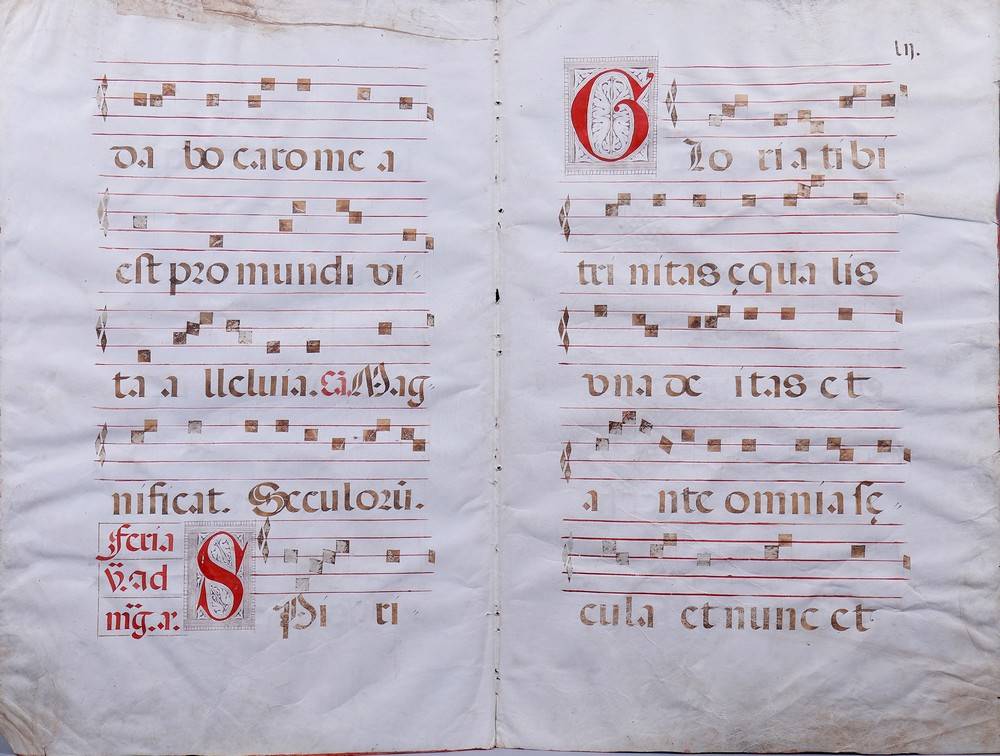 da bo caro me a
est pro mundi vi
ta a lleluia. Ca. Mag
nificat. Seculorū.
Feria
v. ad
Spi ri
lij.
Glo ri a tibi
tri nitas ęqua lis
vna de itas et
a nte omnia sę
cula et nunc et